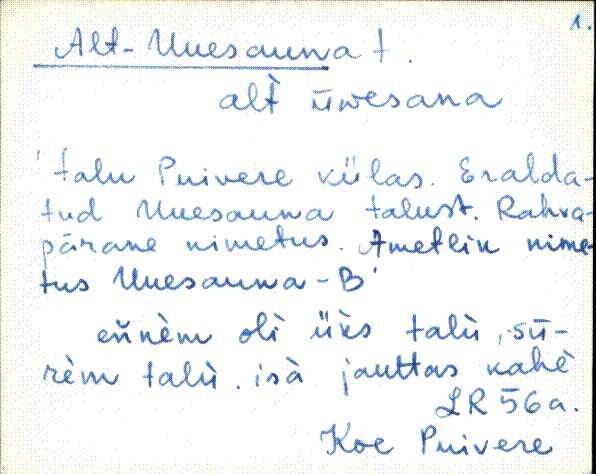 1.
Alt-Uuesauna t.
alt̀ ūwesana
'talu Puivere külas. Eralda-
tud Uuesauna talust. Rahva-
pärane nimetus. Ametlik nime-
tus Uuesauna-B'
eǹnèm olì ük̀s talù, sū-
rèm talù. isà jauttas kahè
LR 56a.
Koe Puivere